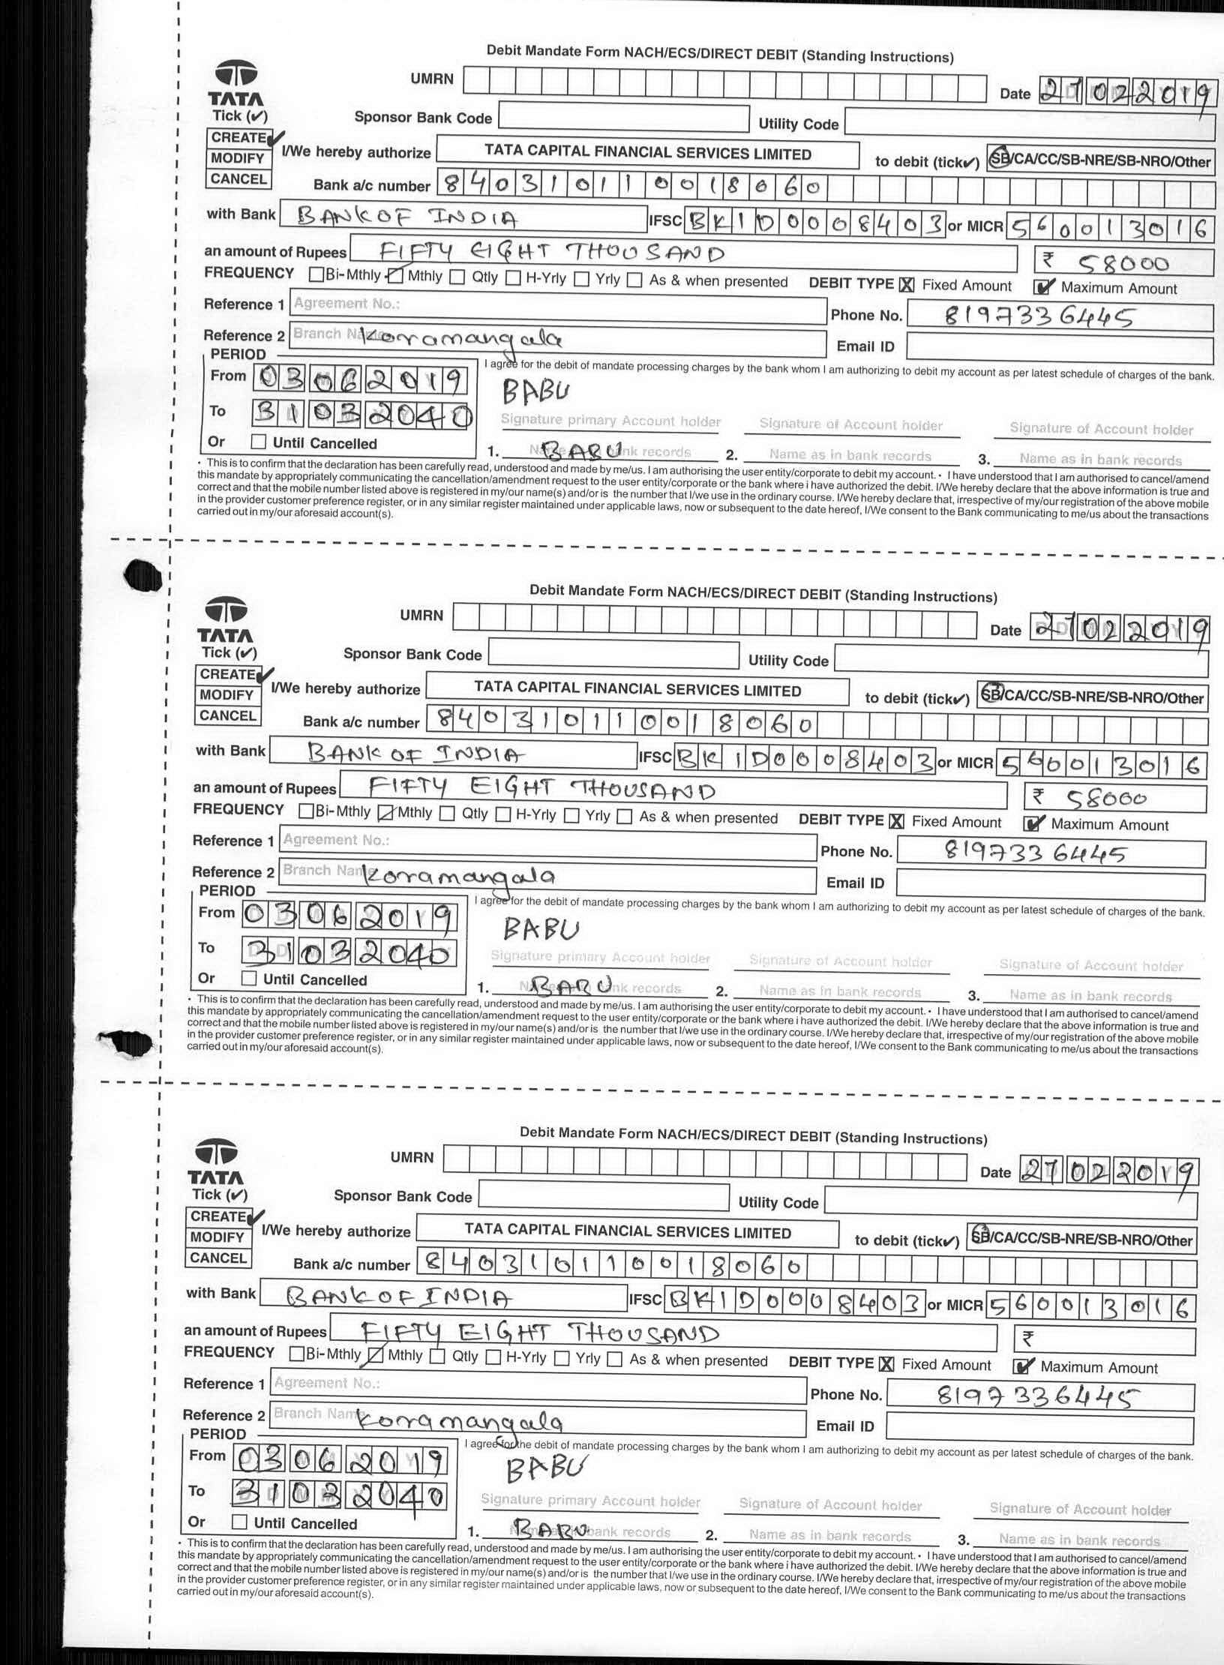 Debit Mandate Form NACH/ECS/DIRECT DEBIT (Standing Instructions)
TATA
UMRN Date 27022019
Tick (✓) Sponsor Bank Code Utility Code
CREATE ✓
MODIFY
CANCEL
I/We hereby authorize TATA CAPITAL FINANCIAL SERVICES LIMITED to debit (tick✓) SB/CA/CC/SB-NRE/SB-NRO/Other
Bank a/c number 840310110018060
with Bank BANK OF INDIA IFSC BKID0008403 or MICR 560013016
an amount of Rupees FIFTY EIGHT THOUSAND ₹ 58000
FREQUENCY Bi-Mthly Mthly Qtly H-Yrly Yrly As & when presented DEBIT TYPE X Fixed Amount ✓ Maximum Amount
Reference 1 Agreement No.: Phone No. 8197336445
Reference 2 Branch Name Koramangala Email ID
PERIOD
I agree for the debit of mandate processing charges by the bank whom I am authorizing to debit my account as per latest schedule of charges of the bank.
From 03062019
BABU
To 31032040
Signature primary Account holder Signature of Account holder Signature of Account holder
Or Until Cancelled
1. BABU 2. Name as in bank records 3. Name as in bank records
• This is to confirm that the declaration has been carefully read, understood and made by me/us. I am authorising the user entity/corporate to debit my account. • I have understood that I am authorised to cancel/amend
this mandate by appropriately communicating the cancellation/amendment request to the user entity/corporate or the bank where i have authorized the debit. I/We hereby declare that the above information is true and
correct and that the mobile number listed above is registered in my/our name(s) and/or is the number that I/we use in the ordinary course. I/We hereby declare that, irrespective of my/our registration of the above mobile
in the provider customer preference register, or in any similar register maintained under applicable laws, now or subsequent to the date hereof, I/We consent to the Bank communicating to me/us about the transactions
carried out in my/our aforesaid account(s).
Debit Mandate Form NACH/ECS/DIRECT DEBIT (Standing Instructions)
TATA
UMRN Date 27022019
Tick (✓) Sponsor Bank Code Utility Code
CREATE ✓
MODIFY
CANCEL
I/We hereby authorize TATA CAPITAL FINANCIAL SERVICES LIMITED to debit (tick✓) SB/CA/CC/SB-NRE/SB-NRO/Other
Bank a/c number 840310110018060
with Bank BANK OF INDIA IFSC BKID0008403 or MICR 560013016
an amount of Rupees FIFTY EIGHT THOUSAND ₹ 58000
FREQUENCY Bi-Mthly Mthly Qtly H-Yrly Yrly As & when presented DEBIT TYPE X Fixed Amount ✓ Maximum Amount
Reference 1 Agreement No.: Phone No. 8197336445
Reference 2 Branch Name Koramangala Email ID
PERIOD
I agree for the debit of mandate processing charges by the bank whom I am authorizing to debit my account as per latest schedule of charges of the bank.
From 03062019
BABU
To 31032040
Signature primary Account holder Signature of Account holder Signature of Account holder
Or Until Cancelled
1. BABU 2. Name as in bank records 3. Name as in bank records
• This is to confirm that the declaration has been carefully read, understood and made by me/us. I am authorising the user entity/corporate to debit my account. • I have understood that I am authorised to cancel/amend
this mandate by appropriately communicating the cancellation/amendment request to the user entity/corporate or the bank where i have authorized the debit. I/We hereby declare that the above information is true and
correct and that the mobile number listed above is registered in my/our name(s) and/or is the number that I/we use in the ordinary course. I/We hereby declare that, irrespective of my/our registration of the above mobile
in the provider customer preference register, or in any similar register maintained under applicable laws, now or subsequent to the date hereof, I/We consent to the Bank communicating to me/us about the transactions
carried out in my/our aforesaid account(s).
Debit Mandate Form NACH/ECS/DIRECT DEBIT (Standing Instructions)
TATA
UMRN Date 27022019
Tick (✓) Sponsor Bank Code Utility Code
CREATE ✓
MODIFY
CANCEL
I/We hereby authorize TATA CAPITAL FINANCIAL SERVICES LIMITED to debit (tick✓) SB/CA/CC/SB-NRE/SB-NRO/Other
Bank a/c number 840310110018060
with Bank BANK OF INDIA IFSC BKID0008403 or MICR 560013016
an amount of Rupees FIFTY EIGHT THOUSAND ₹
FREQUENCY Bi-Mthly Mthly Qtly H-Yrly Yrly As & when presented DEBIT TYPE X Fixed Amount ✓ Maximum Amount
Reference 1 Agreement No.: Phone No. 8197336445
Reference 2 Branch Name Koramangala Email ID
PERIOD
I agree for the debit of mandate processing charges by the bank whom I am authorizing to debit my account as per latest schedule of charges of the bank.
From 03062019
BABU
To 31032040
Signature primary Account holder Signature of Account holder Signature of Account holder
Or Until Cancelled
1. BABU 2. Name as in bank records 3. Name as in bank records
• This is to confirm that the declaration has been carefully read, understood and made by me/us. I am authorising the user entity/corporate to debit my account. • I have understood that I am authorised to cancel/amend
this mandate by appropriately communicating the cancellation/amendment request to the user entity/corporate or the bank where i have authorized the debit. I/We hereby declare that the above information is true and
correct and that the mobile number listed above is registered in my/our name(s) and/or is the number that I/we use in the ordinary course. I/We hereby declare that, irrespective of my/our registration of the above mobile
in the provider customer preference register, or in any similar register maintained under applicable laws, now or subsequent to the date hereof, I/We consent to the Bank communicating to me/us about the transactions
carried out in my/our aforesaid account(s).